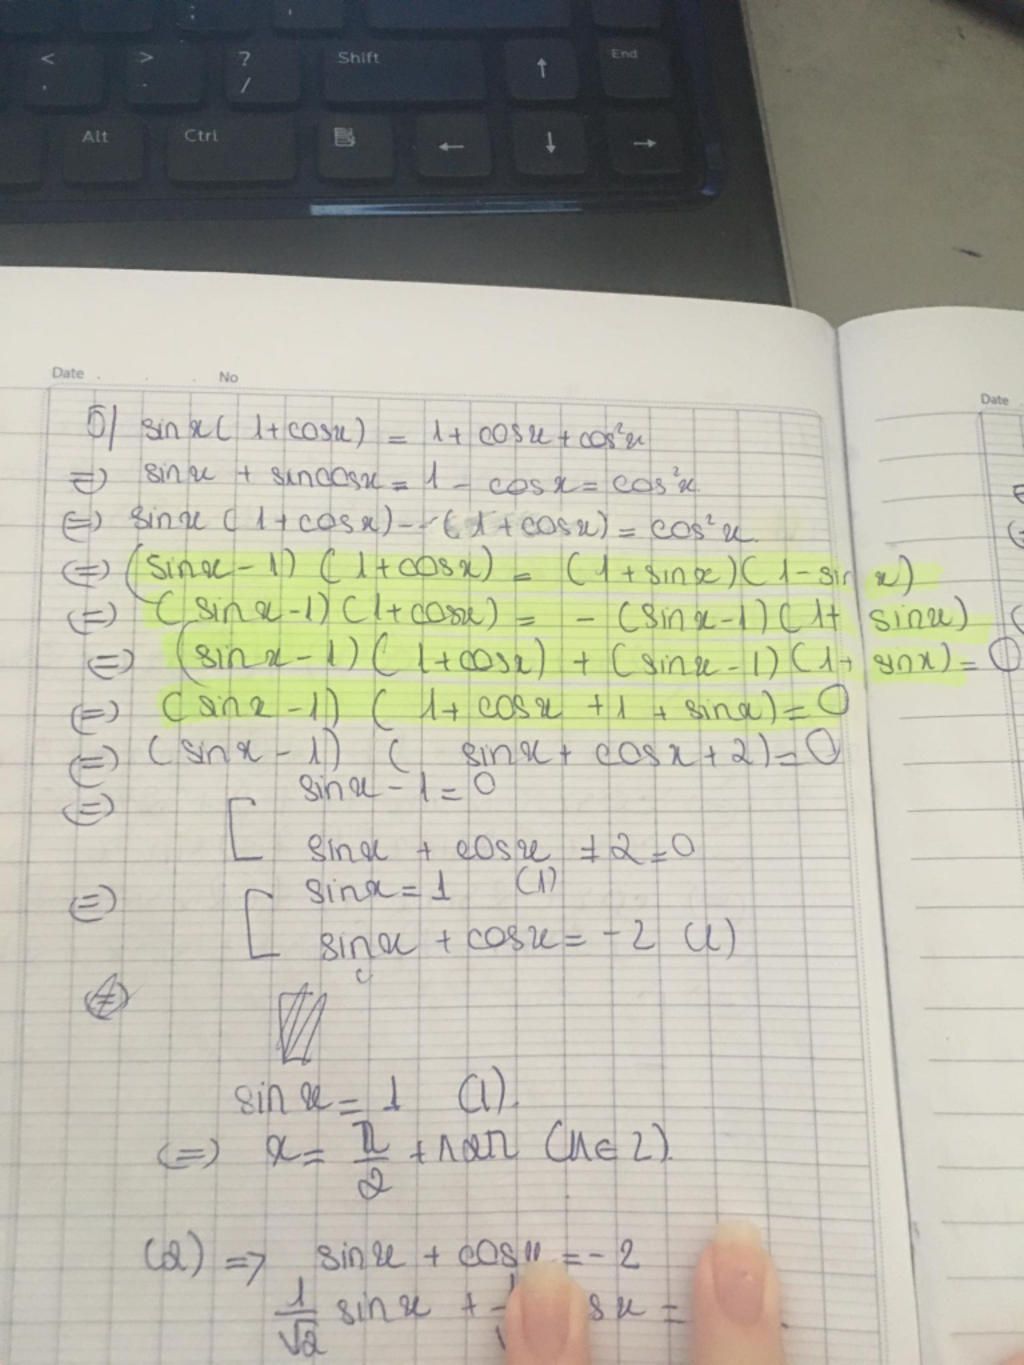 < > ? Shift ↑ End
, . /
Alt Ctrl ← ↓ →
Date No
Date
5) sinx( 1+cosx) = 1+ cosx + cos²x
⇔ sinx + sincosx = 1 - cosx = cos²x
⇔ sinx ( 1+cosx) - (1+cosx) = cos²x
⇔ (sinx-1) (1+cosx) = (1+sinx)(1-sinx)
⇔ (sinx-1)(1+cosx) = - (sinx-1)(1+ sinx)
⇔ (sinx-1)(1+cosx) + (sinx-1)(1+ sinx) = 0
⇔ (sinx-1) ( 1+ cosx +1 + sinx) = 0
⇔ (sinx-1) ( sinx + cosx + 2) = 0
⇔ [ sinx - 1 = 0
sinx + cosx + 2 = 0
⇔ [ sinx = 1 (1)
sinx + cosx = -2 (2)
sinx = 1 (1).
⇔ x = π/2 + k2π (k∈Z).
(2) => sinx + cosx = -2
1/√2 sinx + =